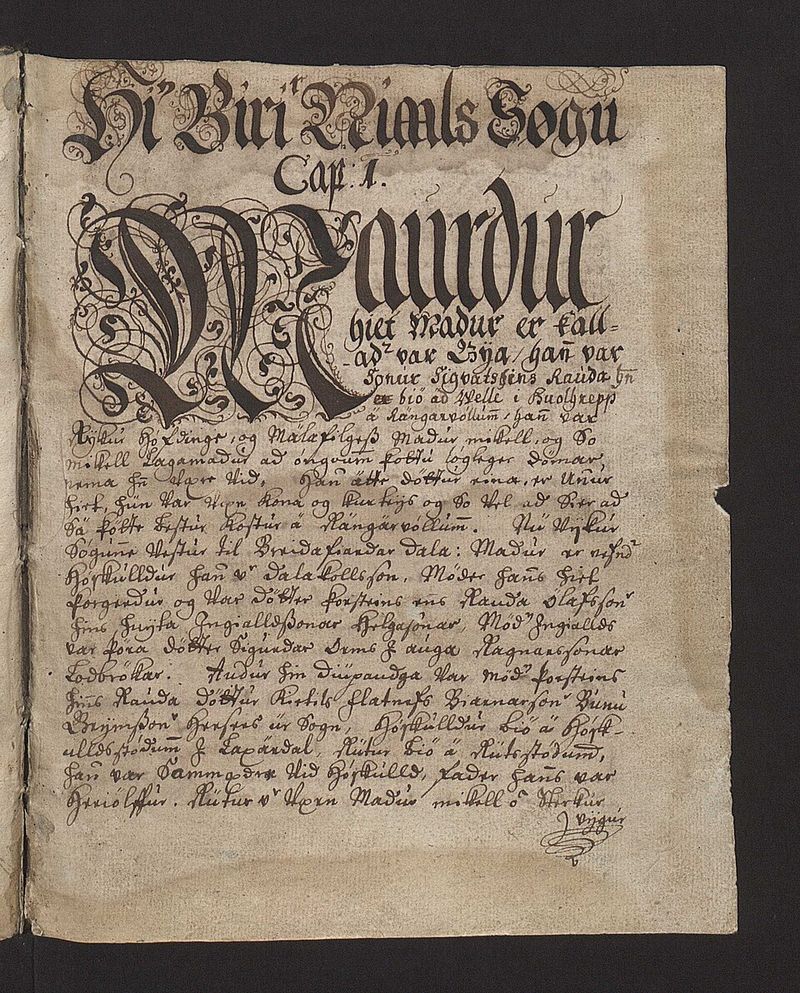 Hr Biriar Nials Søgu
Cap: 1.
Maurdur
hiet Madur er kall=
adr var Gija / han̄ var
Sonur Sigvats hins Rauda hn̄
bió ad Velle i Huolhrepp
á Rángarvöllum̄, han̄ var
Rijkur høfdinge, og Málafilgess Madur mikell, og So
mikell Lagamadur ad øngver þóttu løgleger domar
nema hn̄ være vid, Han̄ átte dóttur eina, er Unnur
hiet, hun var væn kona og kurteis og So vel ad Sier ad
Sá þótte bestur kostur á Rángárvøllum̄. Nú vijkur
Søgun̄e vestur til Breidafiardar dala: Madur er nefndr
Høskulldur han̄ vr dalakollsson, Móder han̄s hiet
þorgerdur og var dótter þorsteins ens Rauda Ólafssonr
hins hvijta Ingialldssonar Helgasonar, Módr Ingiallds
var þora dótter Sigurdar Orms J auga Ragnarssonar
Lodbrókar. Audur hin diupaudga var módr þorsteins
hins Rauda dóttur Ketils flatnefs Biarnarsonr Bunu
Grijmssonr Herses úr Sogn, Høskulldur bió á Høsk-
ulldsstødum̄ J Laxárdal, Rútur bió á Rútsstødum̄,
han̄ var Sammædra vid Høskulld, fader han̄s var
Heriólffur. Rútur vr væn Madur mikell o Sterkur
vijgur